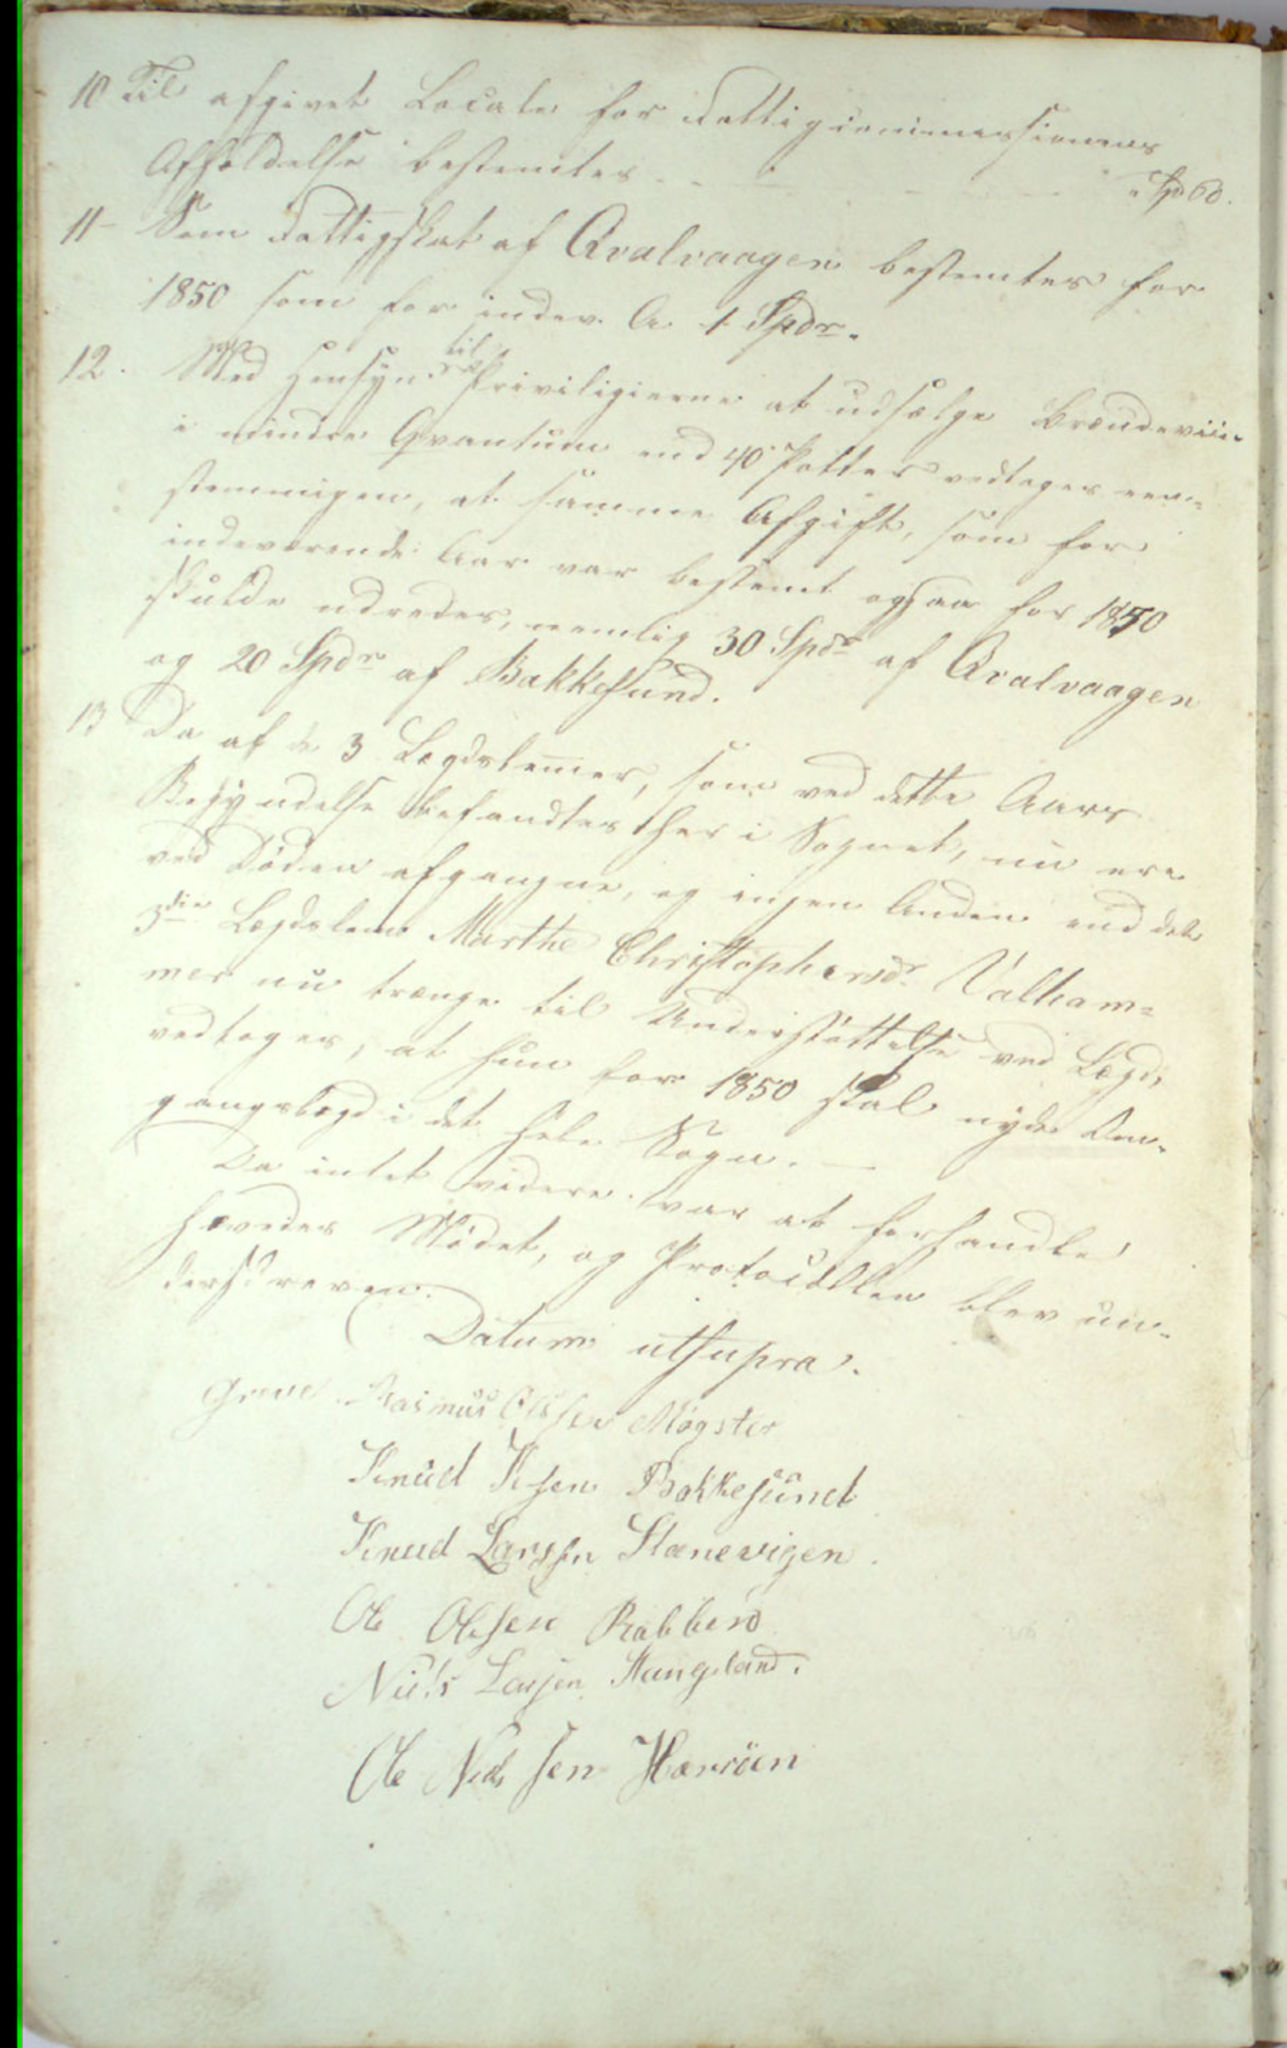 10 Til afgivet Locale for Fattigcommissionens
Afholdelse bestemtes - - - - - " Sp 60.
11 - Som Fattigskat af Qvalvaagen bestemtes for
1850 som for indev. A. 1 Spdr.
12. Med Hensyn til Priviligierne at udsælge Brændeviin
i mindre Qvantum end 40 Potter vedtoges een-
stemmigen, at samme Afgift, som for
indeværende Aar var bestemt ogsaa for 1850
skulde udredes, nemlig 30 Spdr af Qvalvaagen
og 20 Spdr af Bakkesund.
13 Da af de 3 Lægdslemer, som ved dette Aars
Begyndelse befandtes her i Sognet, nu ere
ved Døden afgangne, og ingen Anden end det
3die Lægdslem Marthe Christophersdr Valham-
mer nu trænge til Understøttelse ved Lægd,
vedtoges, at hun for 1850 skal nyde Om-
gangslægd i det hele Sogn. -
Da intet videre var at forhandle
hævedes Mødet, og Protocollen blev un-
derskreven.
Datum utsupra.
Greve. Rasmus Olssen Møgster
Knud Knsen Bakkesund
Knud Larssen Stanevigen.
Ole Olssen Rabben
Niels Larsen Stangeland.
Ole Nielssen Hævröen